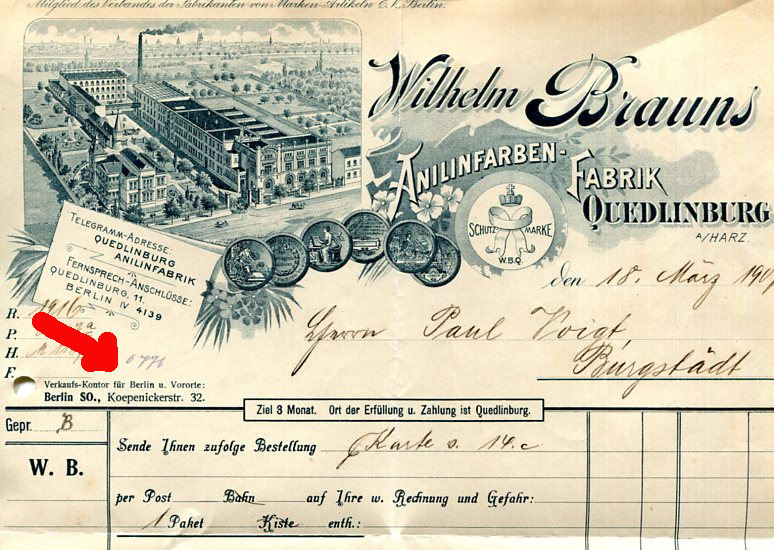 Mitglied des Verbandes der Fabrikanten von Marken-Artikeln E.V. Berlin.
Wilhelm Brauns
Anilinfarben-Fabrik
Quedlinburg
A/HARZ.
SCHUTZ MARKE
W.B.Q.
Telegramm-Adresse:
Quedlinburg
Anilinfabrik
Fernsprech-Anschlüsse:
Quedlinburg, 11.
Berlin IV 4139
den 18. März
R. 1916
P.
H.
F.
Herrn Paul Voigt,
Burgstädt
Verkaufs-Kontor für Berlin u. Vororte:
Berlin SO., Koepenickerstr. 32.
Ziel 3 Monat. Ort der Erfüllung u. Zahlung ist Quedlinburg.
Gepr. B
W. B.
Sende Ihnen zufolge Bestellung Karte s. 14. c
per Post Bahn auf Ihre w. Rechnung und Gefahr:
1 Paket Kiste enth.: